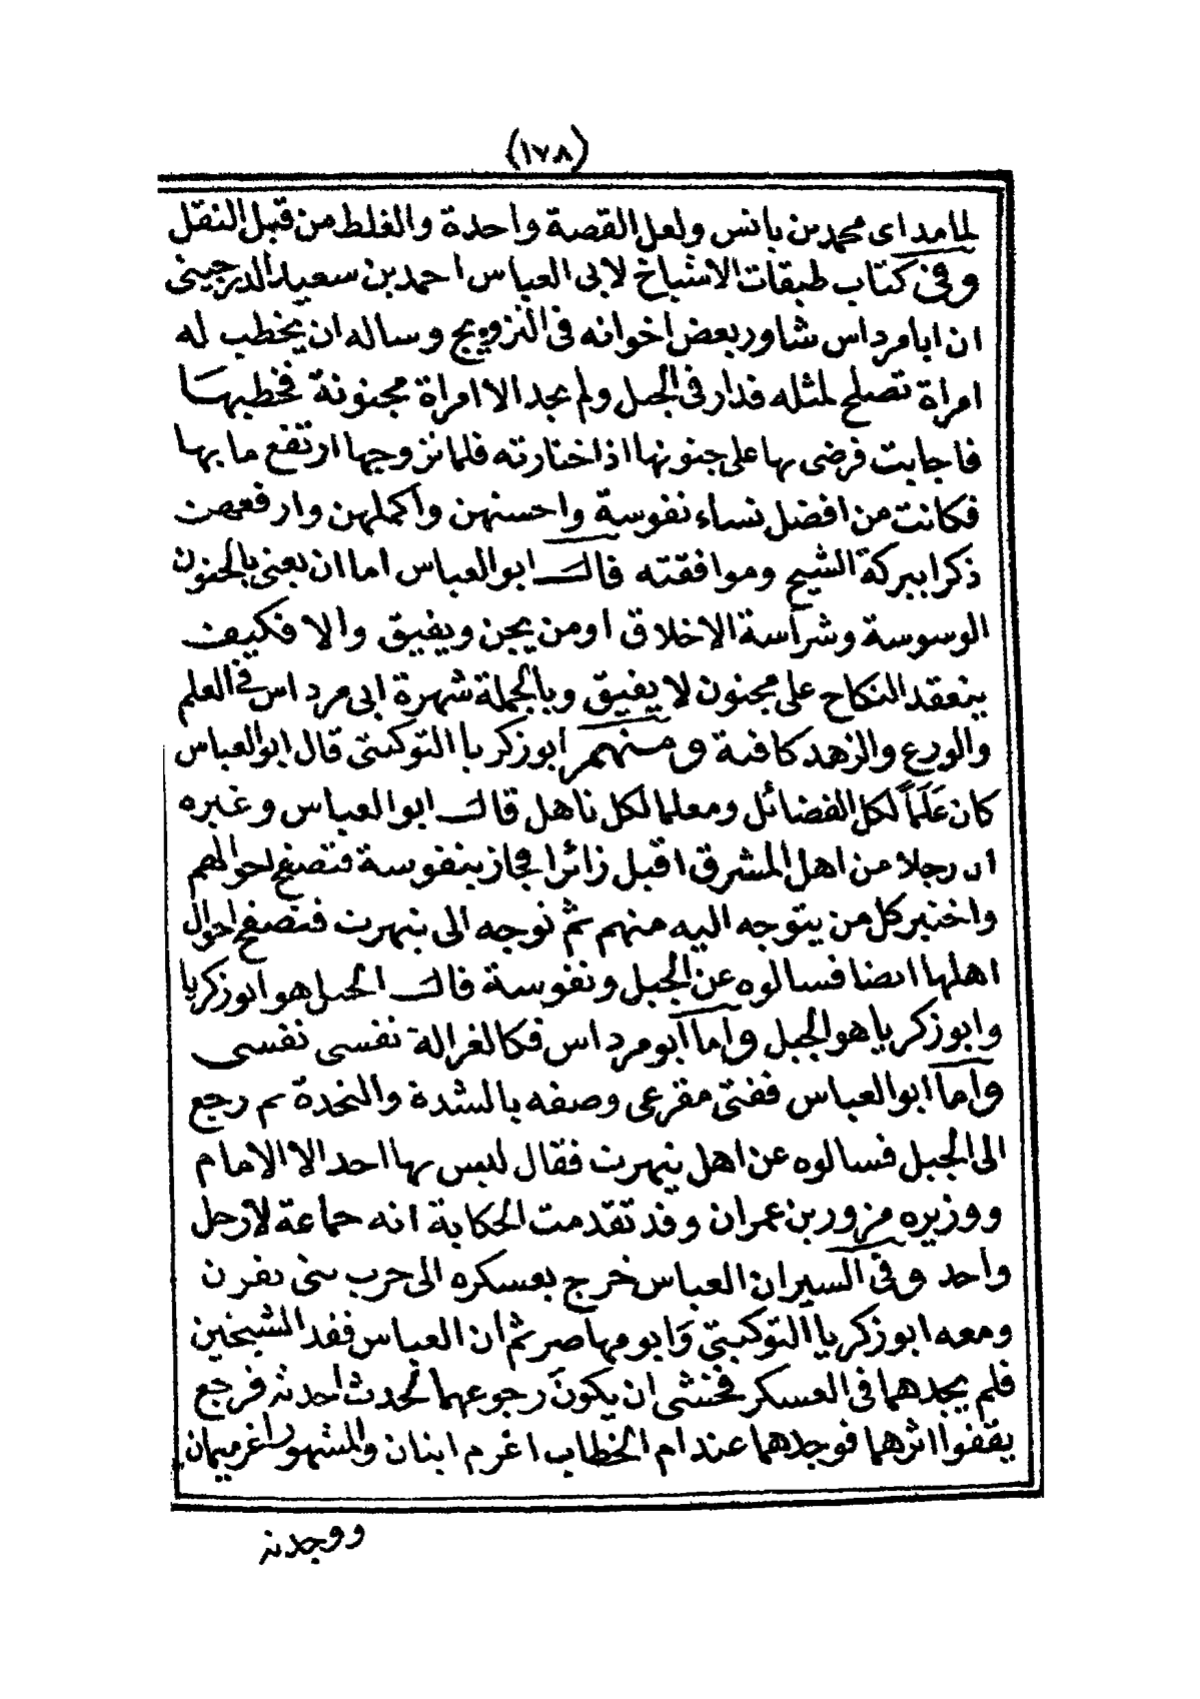 (١٧٨)
لمامد اى محمد بن يانس ولعل القصة واحدة والغلط من قبل النقل
وفى كتاب طبقات الاشياخ لابى العباس احمد بن سعيد الدرجينى
ان ابا مرداس شاور بعض اخوانه فى التزويج وساله ان يخطب له
امراة تصلح لمثله فدار فى الجبل ولم يجد الا امراة مجنونة فخطبها
فاجابت فرضى بها على جنونها اذ اختارته فلما تزوجها ارتفع ما بها
فكانت من افضل نساء نفوسة واحسنهن واكملهن وارفعهن
ذكرا ببركة الشيخ وموافقته قال ابو العباس اما ان يعنى بالجنون
الوسوسة وشراسة الاخلاق او من يجن ويفيق والا فكيف
ينعقد النكاح على مجنون لا يفيق وبالجملة شهرة ابى مرداس فى العلم
والورع والزهد كافية ومنهم ابو زكريا التوكيتى قال ابو العباس
كان عَلَماً لكل الفضائل ومعلما لكل ناهل قال ابو العباس وغيره
ان رجلا من اهل المشرق اقبل زائرا فجاز بنفوسة فتصفح احوالهم
واختبر كل من يتوجه اليه منهم ثم توجه الى تيهرت فتصفح احوال
اهلها ايضا فسالوه عن الجبل ونفوسة قال الجبل هو ابو زكريا
وابو زكريا هو الجبل واما ابو مرداس فكالغزالة نفسى نفسى
واما ابو العباس ففتى مقرعى وصفه بالشدة والنجدة ثم رجع
الى الجبل فسالوه عن اهل تيهرت فقال ليس بها احد الا الامام
ووزيره مزور بن عمران وقد تقدمت الحكاية انه جماعة لا رجل
واحد وفى السير ان العباس خرج بعسكره الى حرب بنى يفرن
ومعه ابو زكريا التوكيتى وَابو مهاصر ثم ان العباس فقد الشيخين
فلم يجدهما فى العسكر فخشى ان يكون رجوعهما لحدث احدثه فرجع
يقفوا اثرهما فوجدهما عند ام الخطاب اغرم اينان والمشهور اغرميمان
ووجدته